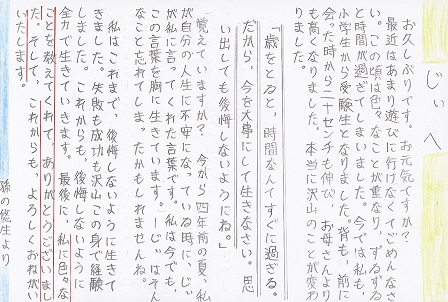 じぃへ
お久しぶりです。お元気ですか?
最近はあまり遊びに行けなくてごめんなさ
い。この頃は色々なことが重なり、ずるずる
と時間が過ぎてしまいました。今では私も、
小学生から受験生となりました。背も、前
会った時から二十センチも伸び、お母さんより
も高くなりました。本当に沢山のことが変わ
「歳をとると、時間なんてすぐに過ぎる。
だから、今を大事にして生きなさい。思
い出しても後悔しないようにね。」
覚えていますか?今から四年前の夏、私
が自分の人生に不安になっている時に、じぃ
が私に言ってくれた言葉です。私は今でも、
この言葉を胸に生きています。じぃはそん
なこと忘れてしまったかもしれませんね。
私はこれまで、後悔しないように生きて
きました。失敗も成功も沢山この身で経験
しました。これからも、後悔しないように
全力で生きていきます。最後に、私に色々な
ことを教えてくれて、ありがとうございまし
た。そして、これからも、よろしくおねがい
いたします。
孫の悠生より